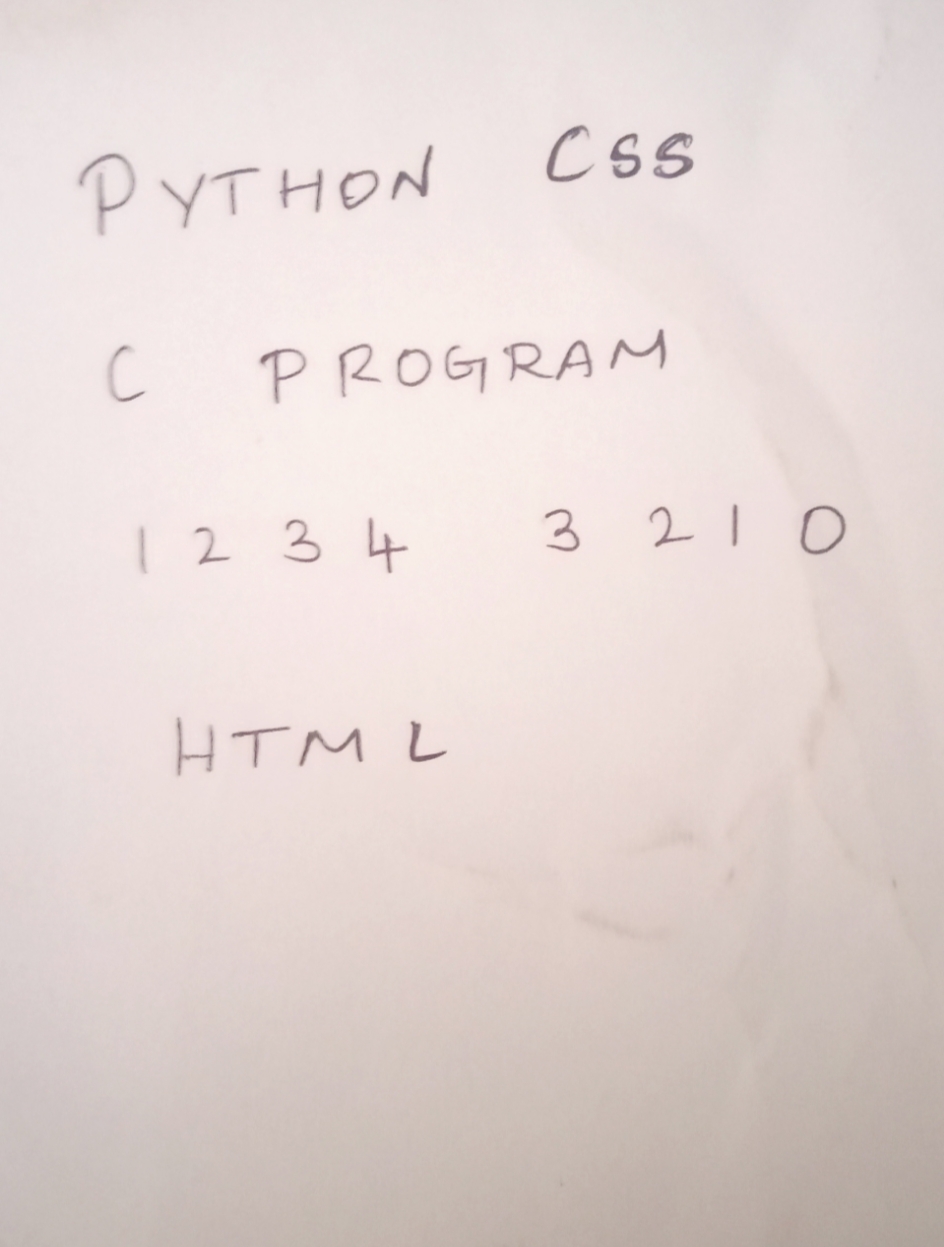 PYTHON CSS
C PROGRAM
1 2 3 4 3 2 1 0
HTML